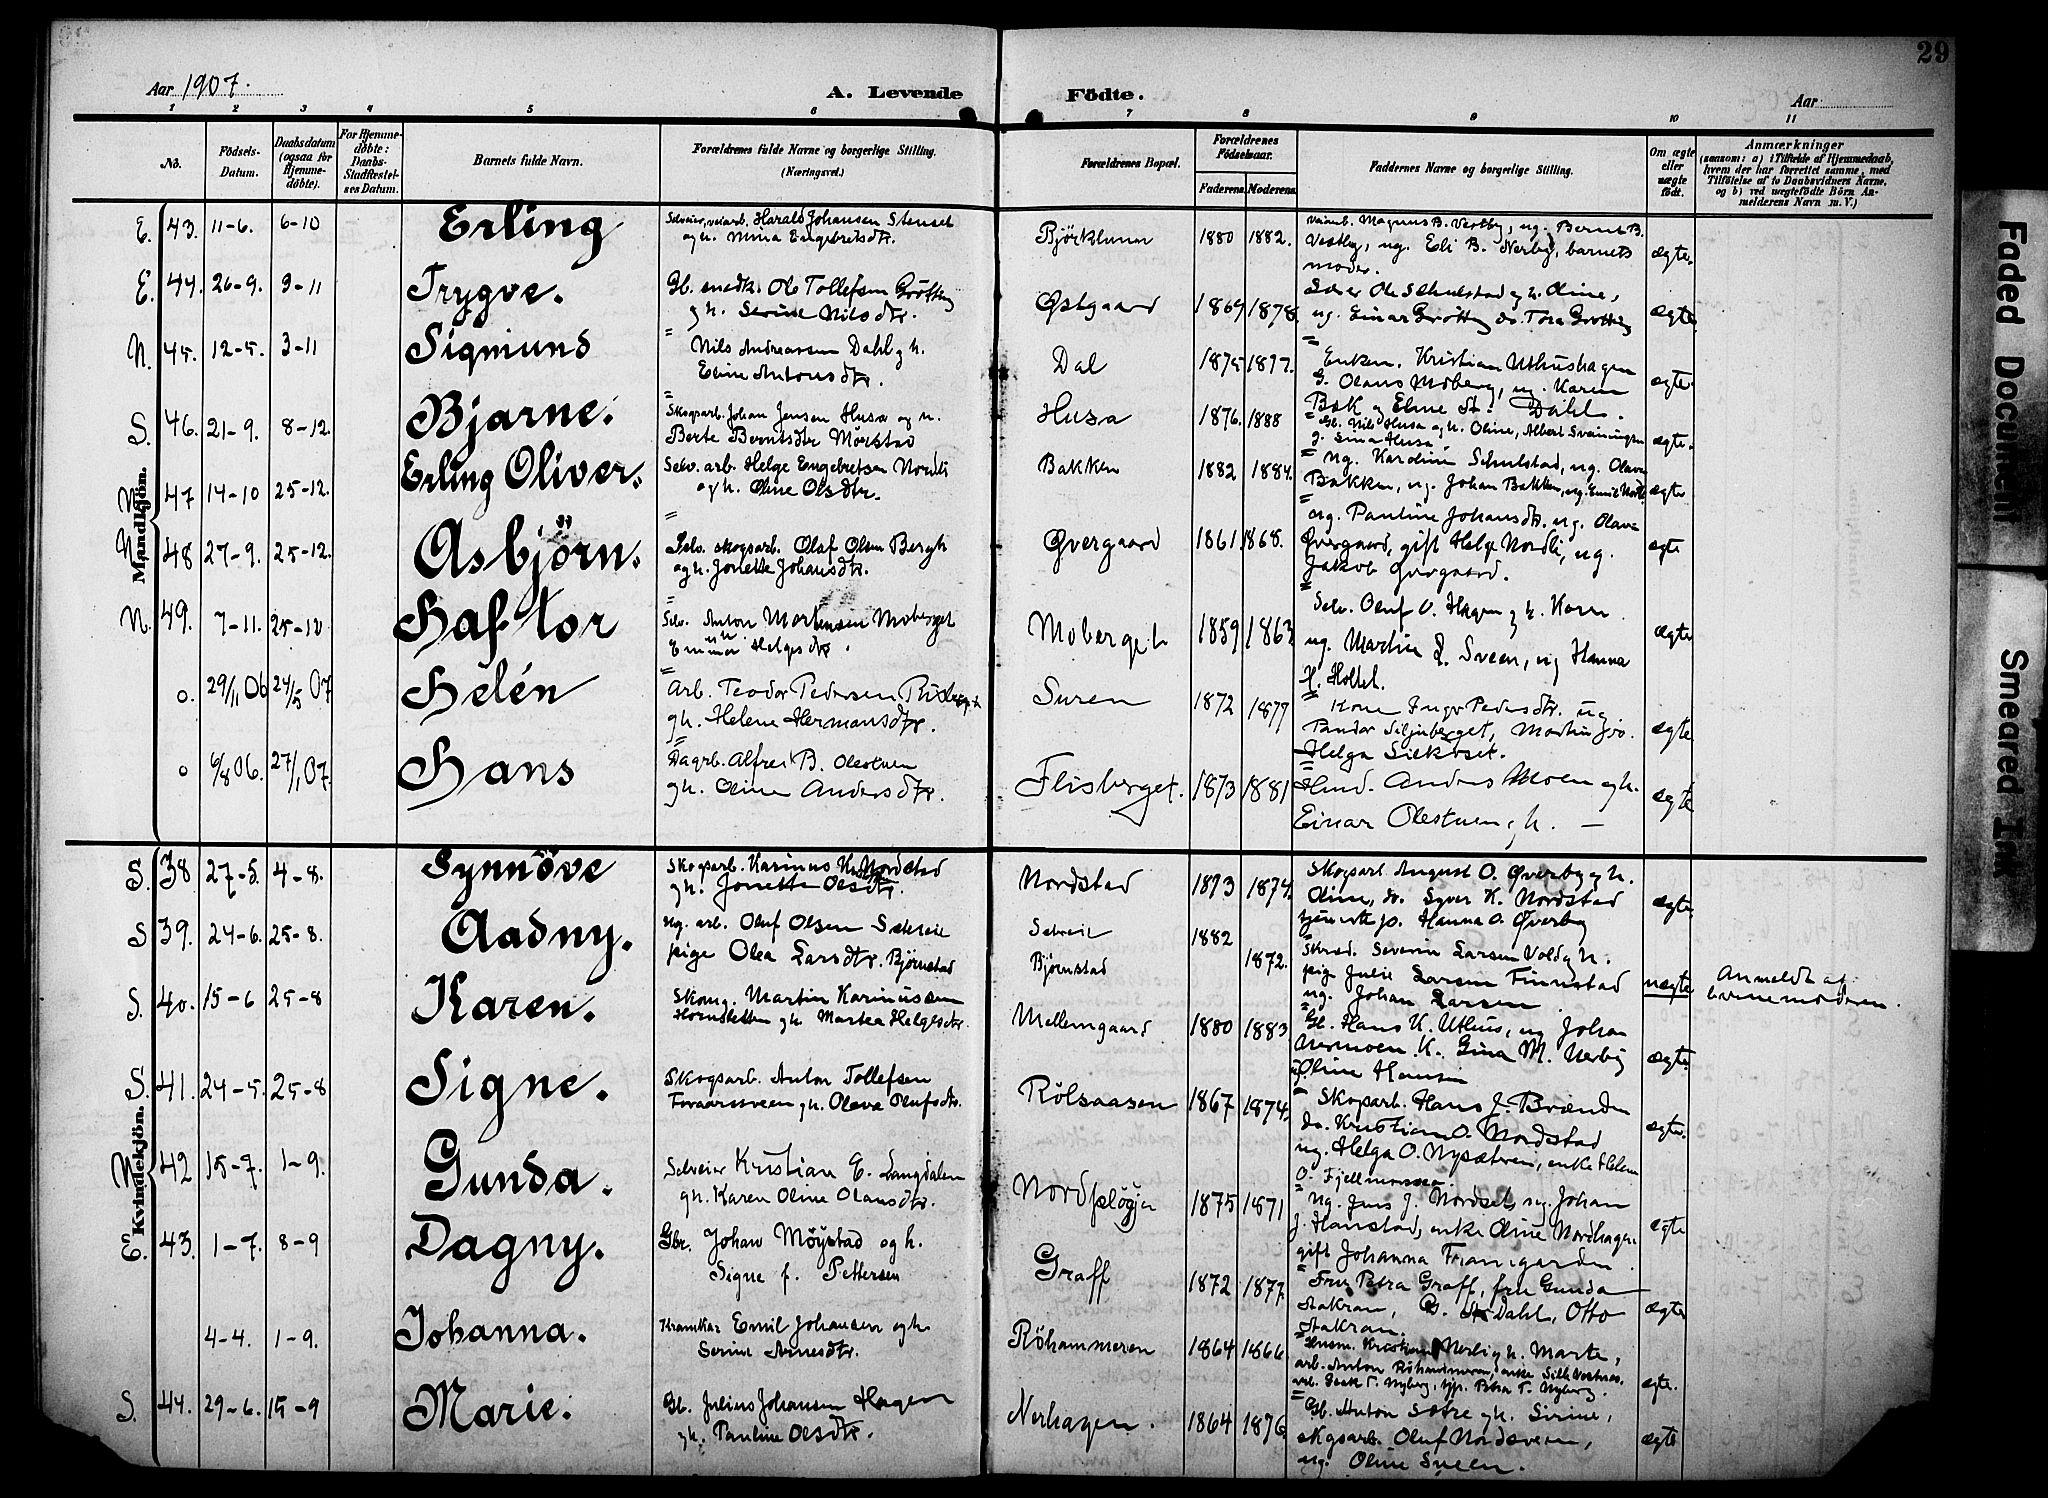 29
Aar 1907.
A. Levende Födte.
Aar
1 2 3 4 5 6 7 8 9 10 11
No.
Födsels-Datum.
Daabsdatum (ogsaa for Hjemmedöbte).
For Hjemmedöbte: Daabs-Stadfæstelses Datum.
Barnets fulde Navn.
Forældrenes fulde Navne og borgerlige Stilling. (Næringsvei.)
Forældrenes Bopæl.
Forældrenes Födselsaar.
Faderens. Moderens.
Faddernes Navne og borgerlige Stilling.
Om ægte eller uægte födt.
Anmærkninger
(saasom: a) i Tilfælde af Hjemmedaab, hvem der har forrettet samme, med Tilföielse af to Daabsvidners Navne, og b) ved uægtefödte Börn Anmelderens Navn m. V.)
Mandkjön.
E. 43. 11-6. 6-10 Erling
Selveier, veiarb. Harald Johansen Stenset
og h. Mina Engebretsdtr.
1880 1882.
Veiarb. Magnus B. Vestby, ug. Bernt B.
Vestby, ug. Eli B. Nerby, barnets
moder.
ægte.
E. 44. 26-9. 3-11 Trygve.
Gb. snedk. Ole Tollefsen Grötting
og h. Serine Nilsdtr.
Østgaard 1869 1878.
Ole Schulstad og h. Oline,
ug. Einar Grötting do. Tora Grötting
ægte.
N. 45. 12-5. 3-11 Sigmund
Nils Andreassen Dahl og h.
Eline Antonsdtr.
Dal 1875 1877.
Enkem. Kristian Uthushagen
G. Olaus Moberg, ug. Karen
Bak og Eline A. Dahl.
ægte.
S. 46. 21-9. 8-12. Bjarne.
Skogsarb. Johan Jensen Husa og h.
Berte Berntsdtr Morstad
Husa 1876. 1888
Gb. Nils Husa og h. Oline, Albert Sveningsen
g. Sina Husa.
ægte.
N 47 14-10 25-12. Erling Oliver.
Selv. arb. Helge Engebretsen Nordli
og h. Oline Olsdtr.
Bakken 1882 1884.
ug. Karoline Schulstad, ug. Olava
Bakken, ug. Johan Bakken, ug. Emil Nordli
ægte
N. 48 27-9. 25-12. Asbjörn.
Selv. skogsarb. Olaf Olsen Bergh
og h. Jonette Johansdtr.
Øvergaard 1861. 1868.
ug. Pauline Johansdtr. ug. Olava
Øvergaard, gift Helge Nordli, ug.
Jakob Øvergaard.
ægte
N. 49. 7-11. 25-12 Haftor
Selv. Anton Mortensen Moberget
Emma Helgesdtr.
Moberget 1859 1863
Selv. Oluf O. Hagen og h. Karen
ug. Martin L. Sveen, ug Hanna
H. Holtet.
ægte
o. 29/11 06 24/3 07 Helén
Arb. Teodor Pedersen
g h. Helene Hermansdtr.
Suren 1872 1877
Kone Inga Pedersdtr. ug
Siljuberget, Martin
Helga
ægte
o 6/8 06. 27/1 07. Hans
Dagarb. Alfred B. Olestuen
g h. Oline Andersdtr.
Flisberget. 1873 1881
Husd. Anders Moen og h.
Einar Olestuen g h. —
ægte
Kvindekjön.
S. 38 27-5. 4-8. Synnöve
Skogsarb. Karinus K. Nordstad
g h. Jonette Olsdtr.
Nordstad 1873 1874.
Skogsarb August O. Øverby og h.
Oline, do. Syver K. Nordstad
Hanna O. Øverby
ægte.
S 39. 24-6. 25-8. Aadny.
ug. arb. Oluf Olsen
pige Olea Larsdtr. Björnstad
Björnstad 1882 1872.
Skræd. Severin Larsen Vold og h.
pige Julie Larsen Finnstad
ug. Johan Larsen
uægte
Anmeldt af
barnemoderen.
S. 40. 15-6 25-8 Karen.
Skomg. Martin Karinussen
Hornsletten g h. Martea Helgesdtr.
Mellemgaard 1880 1883
Gb. Hans K. Uthus, ug Johan
Nermoen K. Gina M. Nerby
Oline Hansen
ægte.
S. 41. 24-5. 25-8 Signe.
Skogsarb. Anton Tollefsen
g h. Olava Olufsdtr.
Rölsaasen 1867 1874.
Skogsarb. Hans J. Brænden
do. Kristian O. Nordstad
ug. Helga O. Nysætren, enke Helene
O. Fjellmosen
ægte.
N 42 15-7. 1-9. Gunda.
Selveier Kristian E. Langdalen
g h. Karen Oline Olausdtr.
1875 1871
ug. Jens J. Nordset, ug. Johan
J. Hanstad, enke Oline Nordhagen
gift Johanna Framgarden
ægte
E. 43. 1-7. 8-9 Dagny.
Gbr. Johan Möystad og h.
Signe f. Pettersen
Graff 1872 1877.
Fru Petra Graff, fru Gunda
Stakran, G. A. Dahl, Otto
Stakran.
ægte
4-4. 1-9. Johanna.
Emil Johansen og h.
Serine Arnesdtr.
Röhammeren 1864 1866
Husm. Kristian Nerli og h. Marte,
arb. Anton Röhammeren, enke
arb. Isak T. Nyberg, Petra T. Nyberg.
ægte.
S. 44. 29-6. 15-9 Marie.
Gb. Julius Johansen Hagen
og h. Pauline Olsdtr.
Nerhagen. 1864 1876
Gb. Anton Sætre g h. Sirine,
skogsarb. Oluf Nordsveen,
ug. Oline Sveen.
ægte
Faded Document
Smeared Ink